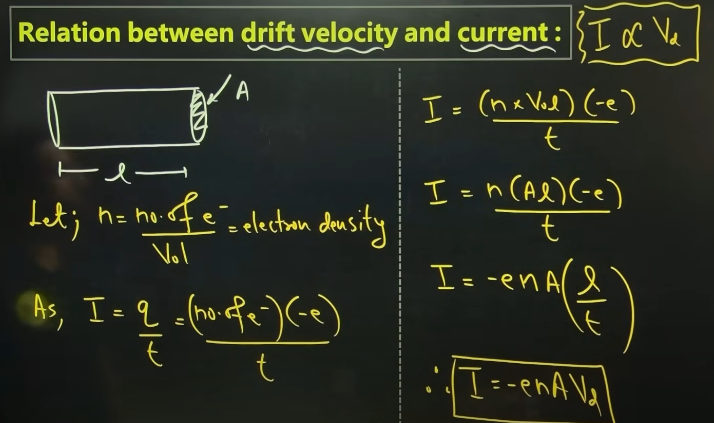 Relation between drift velocity and current :
I ∝ Vd
A
l
Let; n = no. of e⁻ / Vol = electron density
As, I = q/t = (no. of e⁻)(-e) / t
I = (n × Vol)(-e) / t
I = n(Al)(-e) / t
I = -enA(l/t)
∴ I = -enAVd